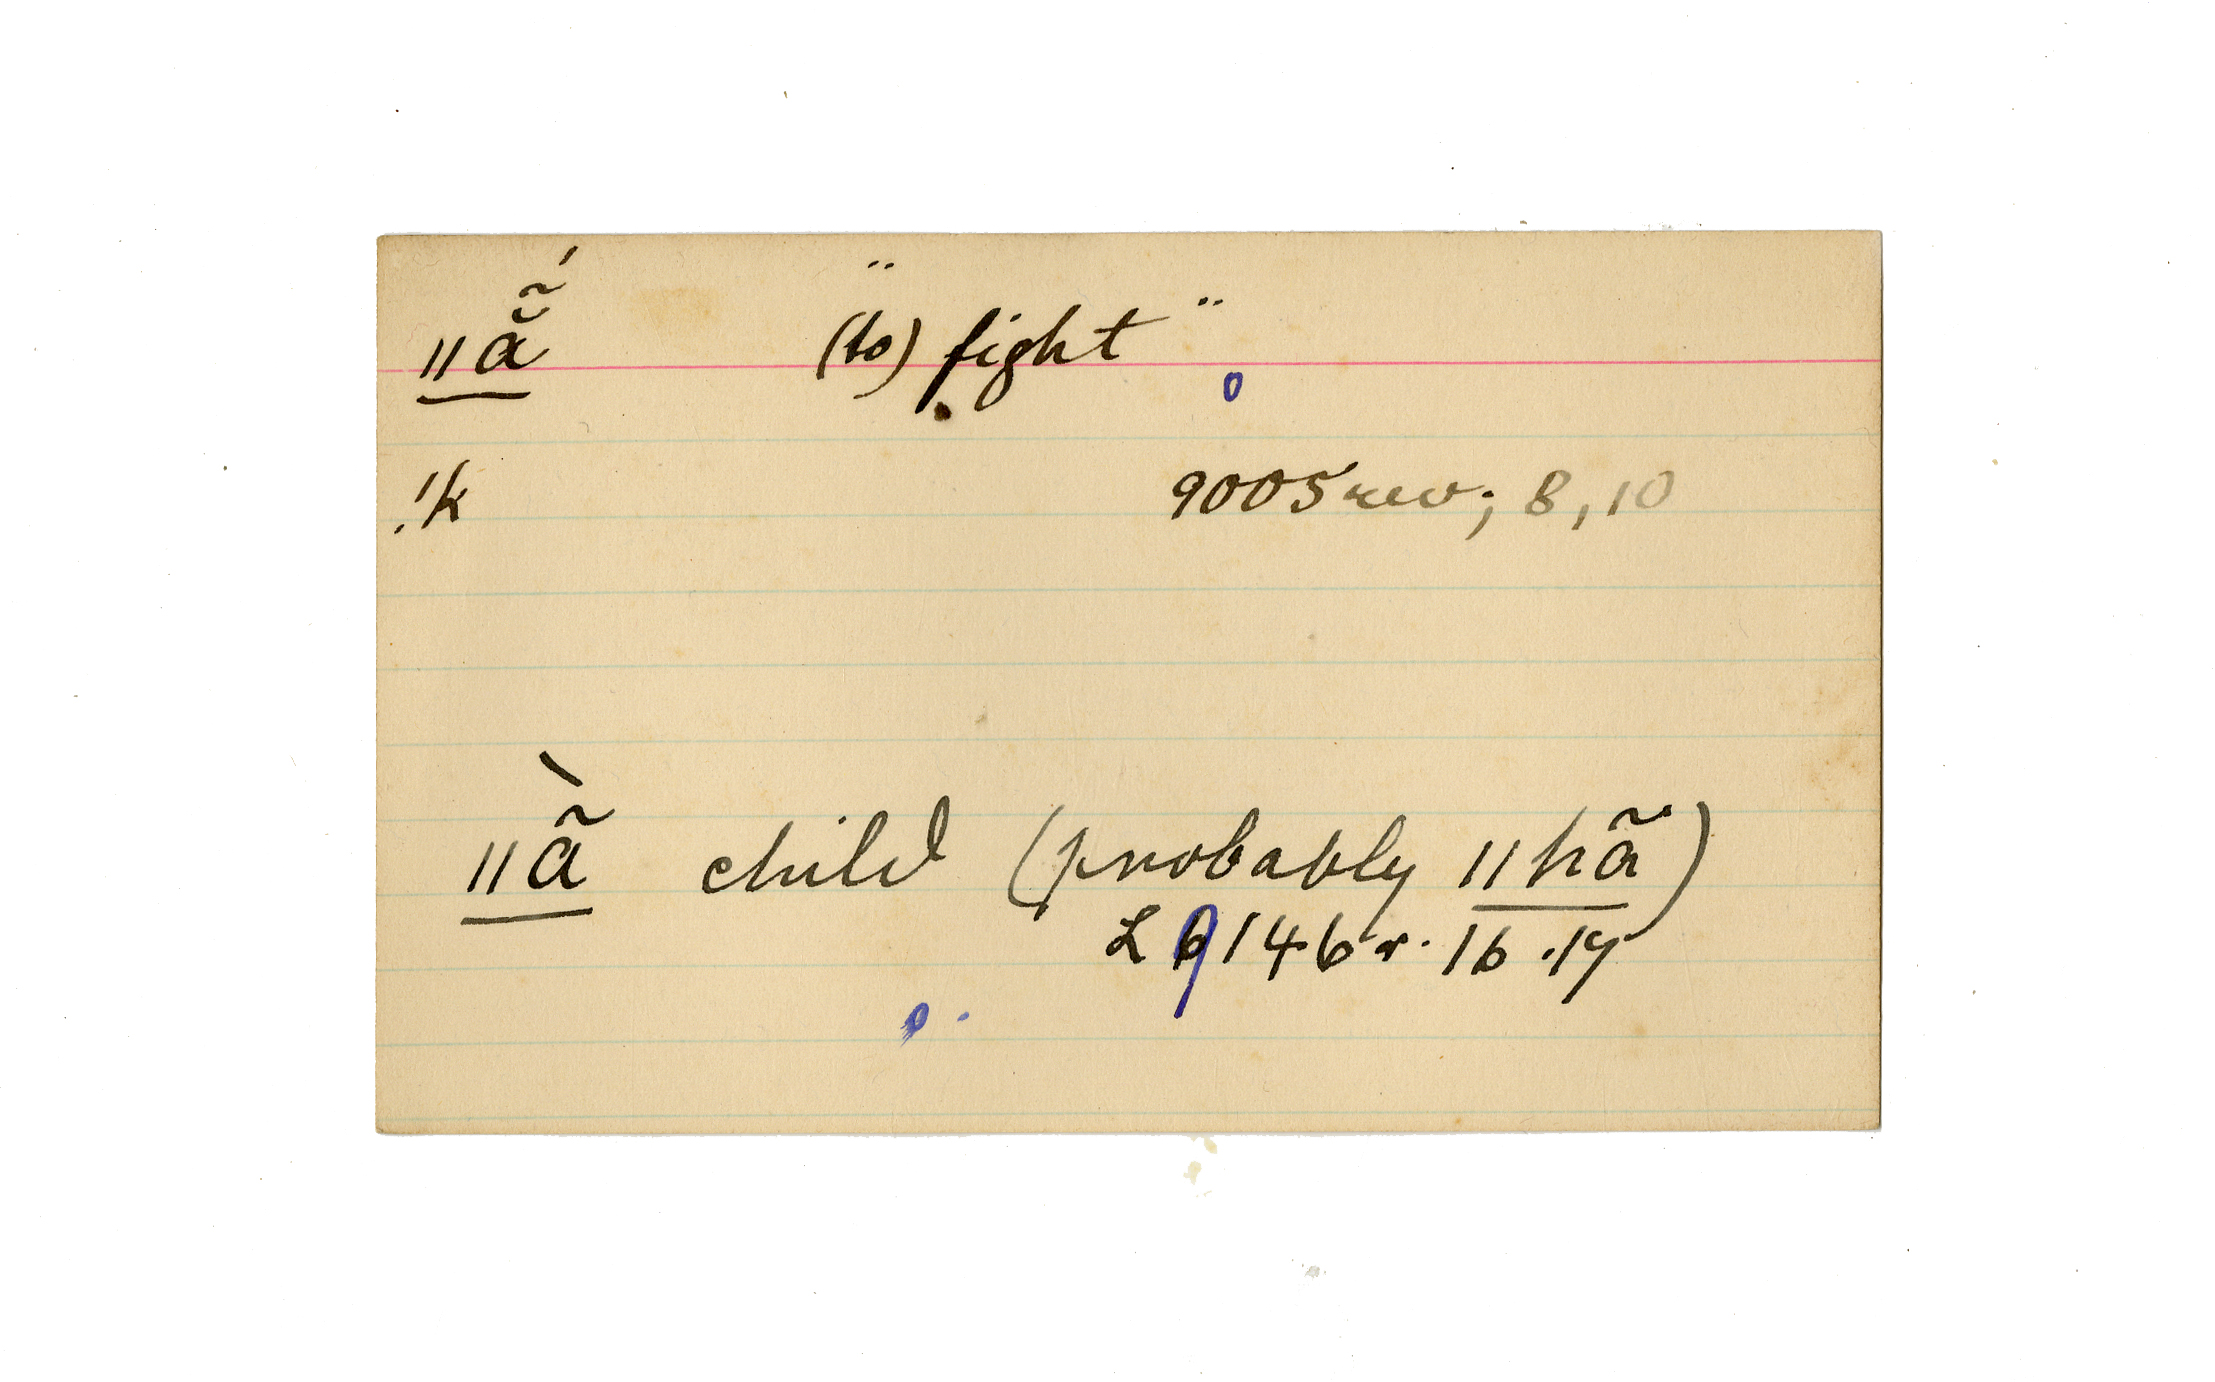 ǁã̆́ "(to) fight"
!k 9005 rev; 8, 10
ǁã̀ child (probably ǁhã)
L 9146 r. 16.17